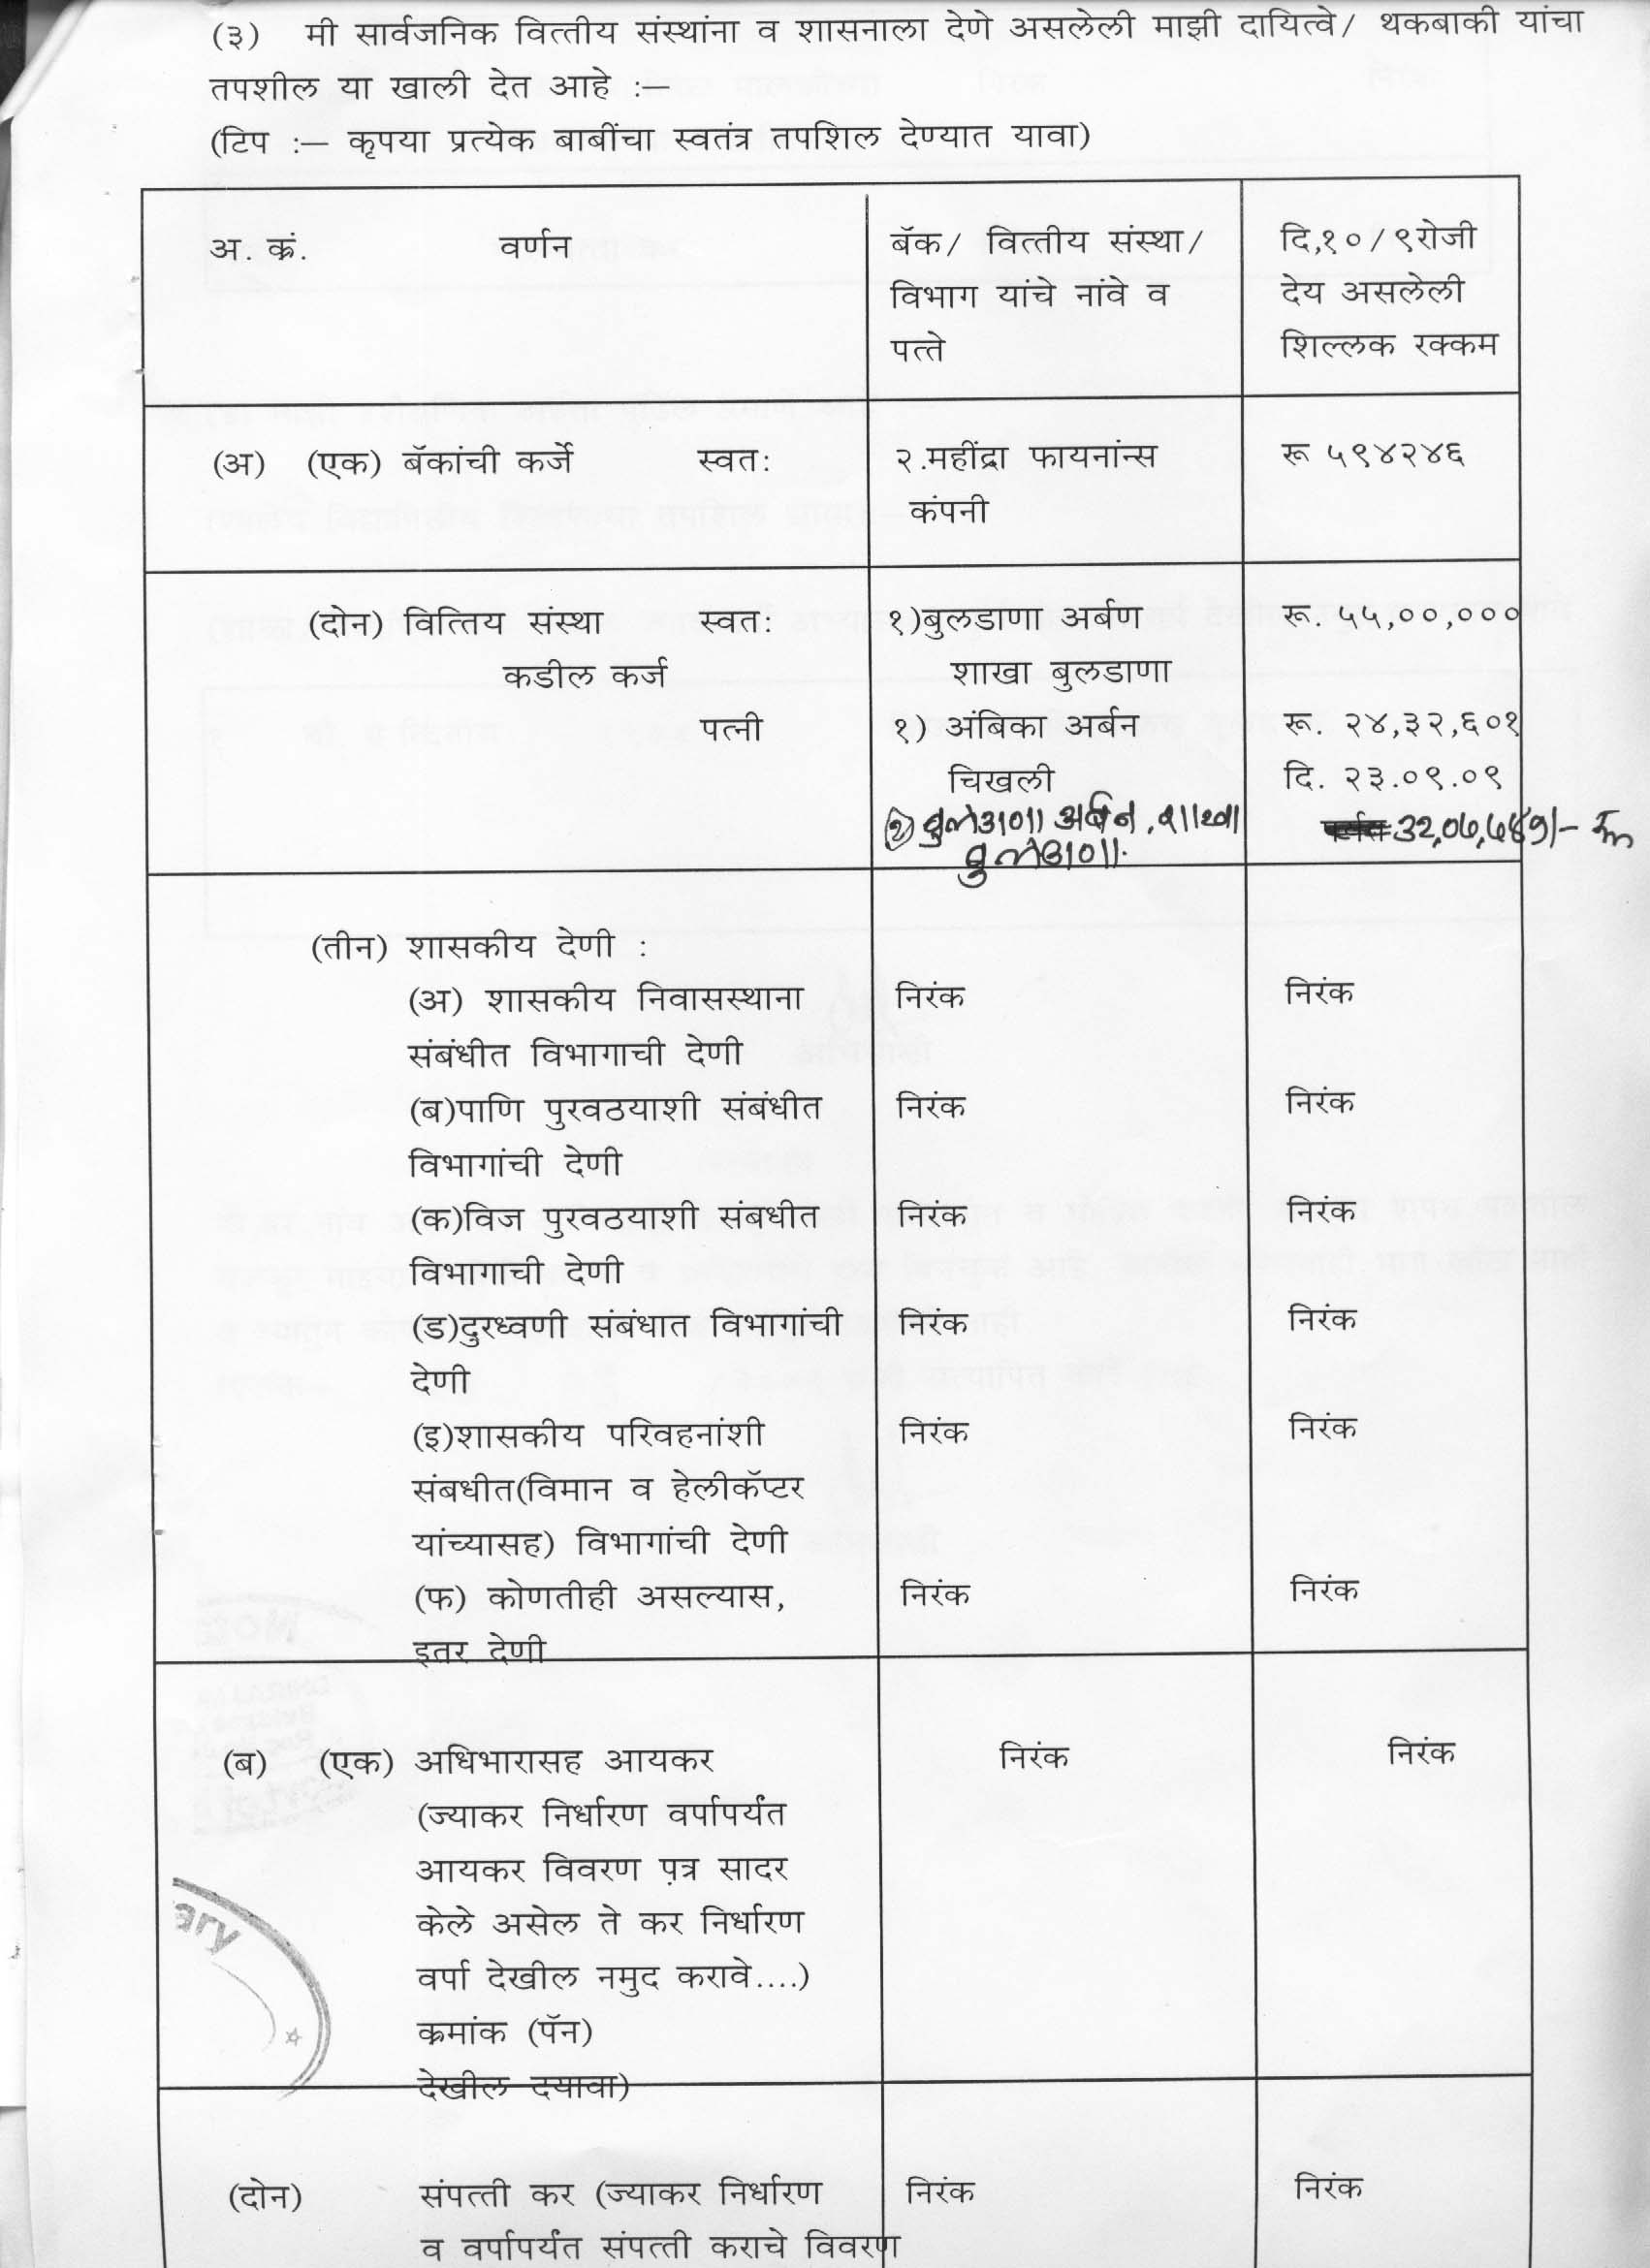 (३) मी सार्वजनिक वित्तीय संस्थांना व शासनाला देणे असलेली माझी दायित्वे/ थकबाकी यांचा
तपशील या खाली देत आहे :—
(टिप :— कृपया प्रत्येक बाबींचा स्वतंत्र तपशिल देण्यात यावा)
अ. क्रं. वर्णन
बॅक/ वित्तीय संस्था/
विभाग यांचे नांवे व
पत्ते
दि,१०/९रोजी
देय असलेली
शिल्लक रक्कम
(अ) (एक) बॅकांची कर्जे स्वत:
२.महींद्रा फायनांन्स
कंपनी
रू ५९४२४६
(दोन) वित्तिय संस्था स्वत:
कडील कर्ज
१)बुलडाणा अर्बण
शाखा बुलडाणा
रू. ५५,००,०००
पत्नी
१) अंबिका अर्बन
चिखली
रू. २४,३२,६०१
दि. २३.०९.०९
२) बुलडाणा अर्बन, शाखा
बुलडाणा.
(तीन) शासकीय देणी :
(अ) शासकीय निवासस्थाना निरंक निरंक
संबंधीत विभागाची देणी
(ब)पाणि पुरवठयाशी संबंधीत निरंक निरंक
विभागांची देणी
(क)विज पुरवठयाशी संबंधीत निरंक निरंक
विभागाची देणी
(ड)दुरध्वणी संबंधात विभागांची निरंक निरंक
देणी
(इ)शासकीय परिवहनांशी निरंक निरंक
संबधीत(विमान व हेलीकॅप्टर
यांच्यासह) विभागांची देणी
(फ) कोणतीही असल्यास, निरंक निरंक
इतर देणी
(ब) (एक) अधिभारासह आयकर निरंक निरंक
(ज्याकर निर्धारण वर्पापर्यंत
आयकर विवरण प़त्र सादर
केले असेल ते कर निर्धारण
वर्पा देखील नमुद करावे....)
क्रमांक (पॅन)
देखील दयावा)
ary
(दोन) संपत्ती कर (ज्याकर निर्धारण निरंक निरंक
व वर्पापर्यंत संपत्ती कराचे विवरण